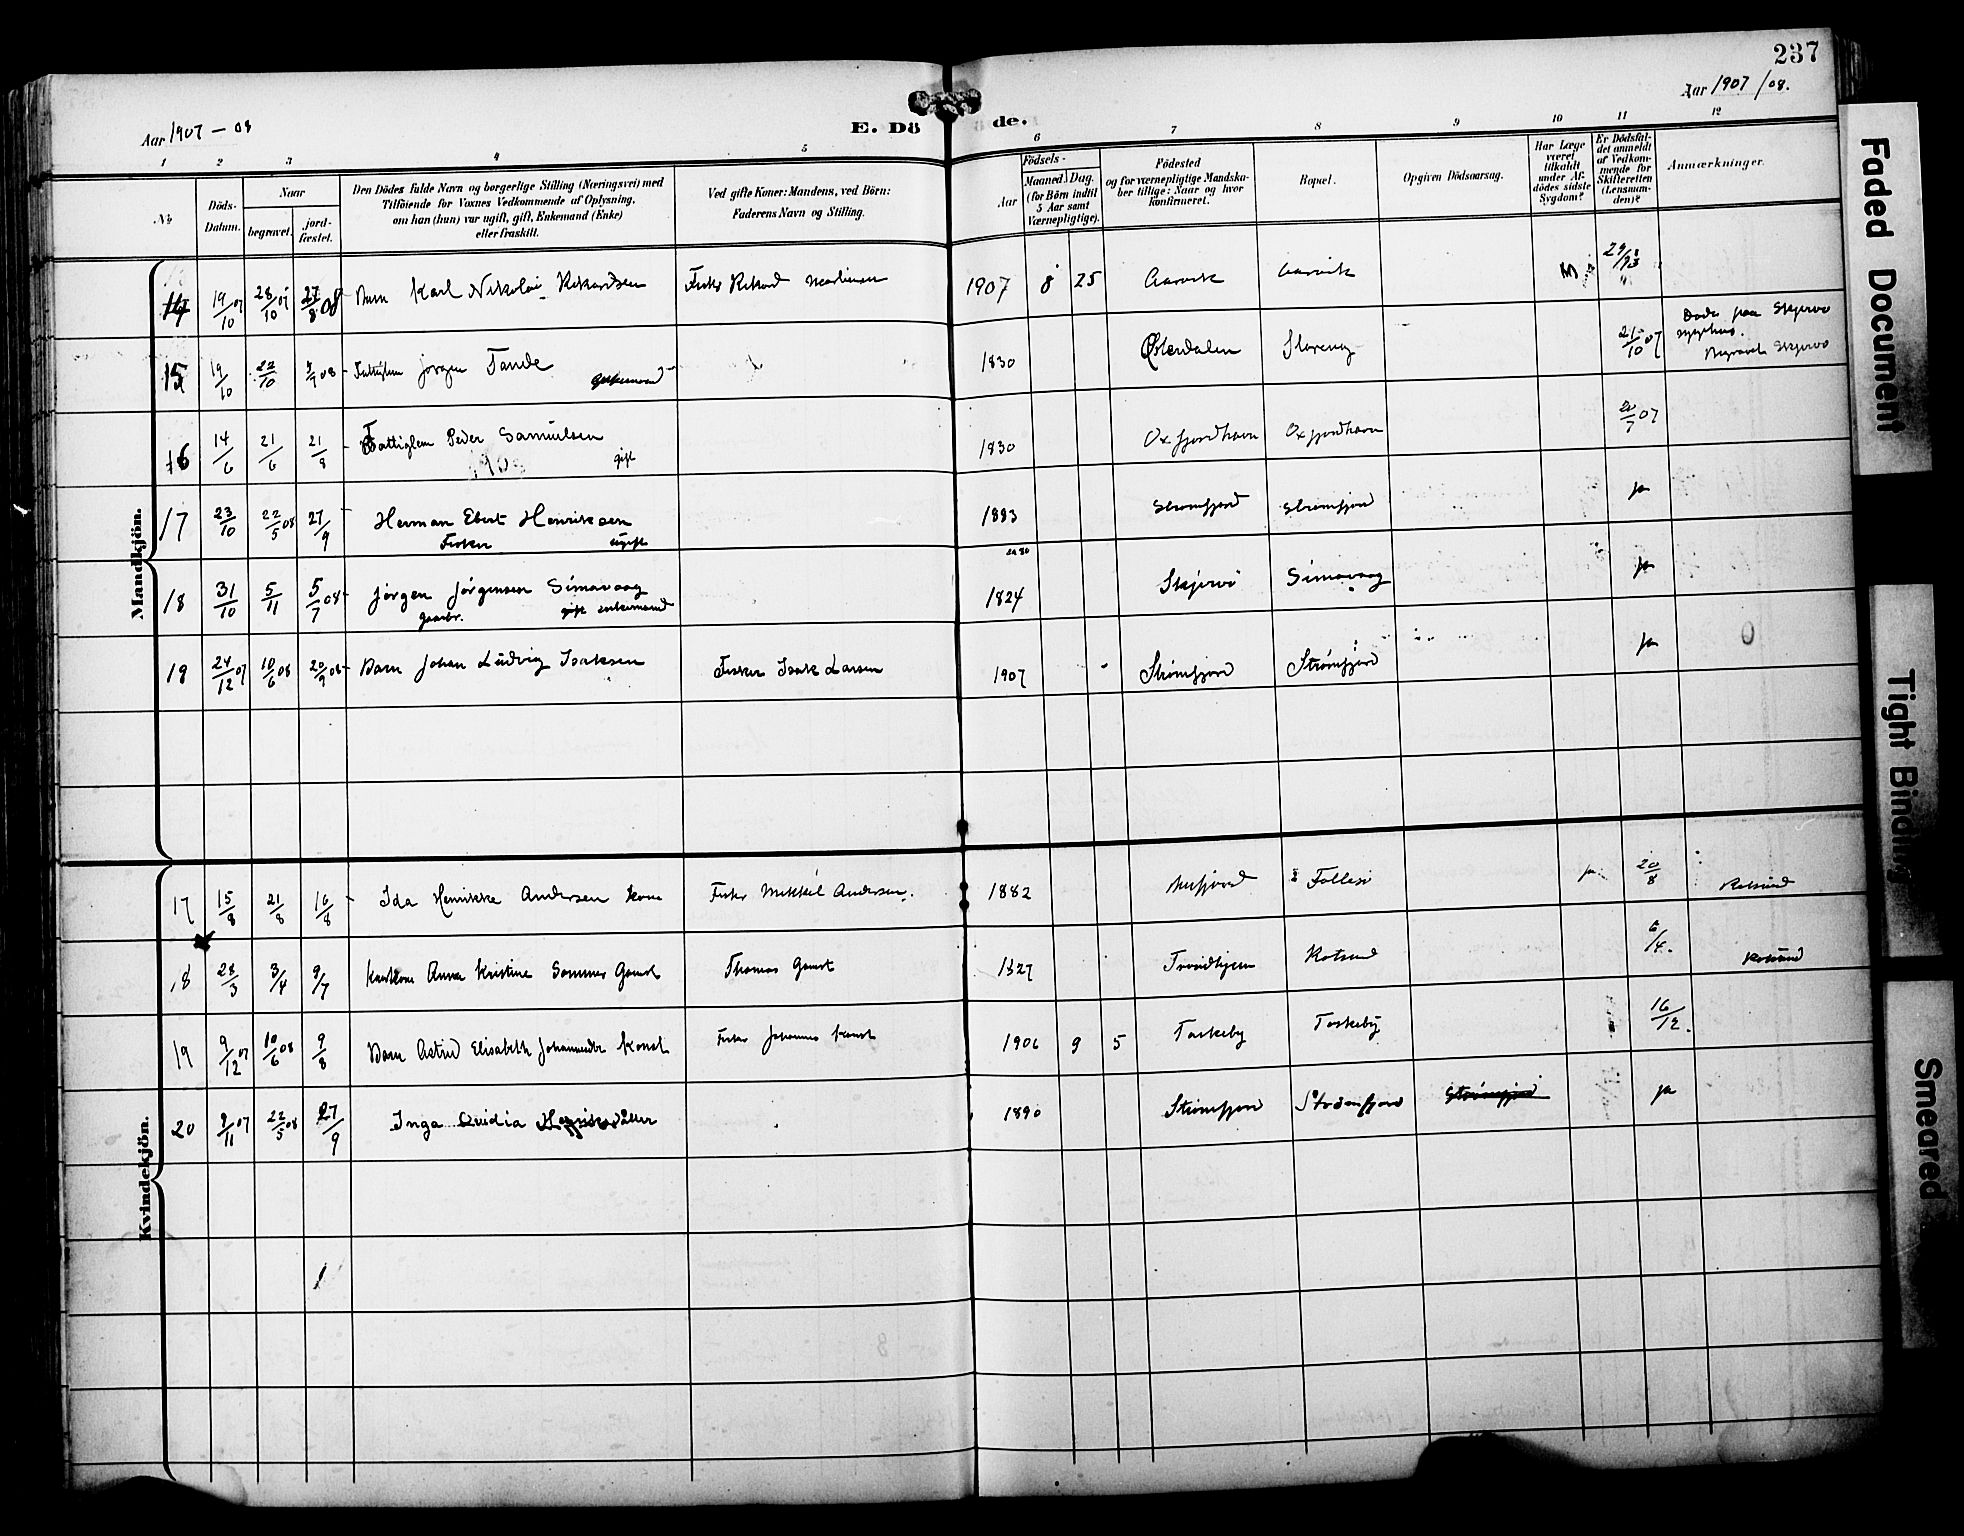 237
Aar 1907 - 08
E. Döde.
Aar 1907/08.
1 2 3 4 5 6 7 8 9 10 11 12
No
Döds-Datum.
Naar
begravet.
jord-fæstet.
Den Dödes fulde Navn og borgerlige Stilling (Næringsvei) med
Tilföiende for Voxnes Vedkommende af Oplysning,
om han (hun) var ugift, gift, Enkemand (Enke)
eller fraskilt.
Ved gifte Koner: Mandens, ved Börn:
Faderens Navn og Stilling.
Födsels-
Aar
Maaned. Dag.
(for Börn indtil
5 Aar samt
Værnepligtige).
Födested
og for værnepligtige Mandska-
ber tillige: Naar og hvor
konfirmeret.
Bopæl.
Opgiven Dödsaarsag.
Har Læge
været
tilkaldt
under Af-
dödes sidste
Sygdom?
Er Dödsfal-
det anmeldt
af Vedkom-
mende for
Skifteretten
(Lensman-
den)?
Anmærkninger.
Mandkjön.
14 19/10 07 28/10 07 27/8 08 Barn Karl Nikolai Rikardsen Fisker Rikard Martinsen 1907 8 25 Aarvik Aarvik
15 19/10 22/10 08 Fattiglem Jørgen Tande Enkemand 1830 Østerdalen 21/10 07 Døde paa Skjervø
sygehus.
Begravet Skjervø
16 14/6 21/6 21/8 Fattiglem Peder Samuelsen gift 1830 Oxfjordhavn Oxfjordhavn 20/7 07
17 23/10 22/5 08 27/9 Herman Ebert Henriksen 1883 Strømfjord Strømfjord ja
Fisker ugift
18 31/10 5/11 5/7 08 Jørgen Jørgensen Simavaag 1824 Skjervö Simavaag ja
gaarbr. gift enkemand
19 24/12 07 10/6 08 20/9 08 Barn Johan Ludvig Isaksen Fisker Isak Larsen 1907 Strømfjord Strømfjord ja
Kvindekjön.
17 15/8 21/8 16/8 Ida Henrikke Andersen kone Fisker Mikkel Andersen. 1882 Follesö ja 20/8 Rotsund
18 28/3 3/4 9/7 Anna Kristine Sommer Gamst Thomas Gamst 1827 Trondhjem Rotsund 6/4. Rotsund
19 9/12 07 10/6 08 9/8 Barn Astrid Elisabeth Johannesdtr Konst Fisker Johannes Konst 1906 9 5 Taskeby Taskeby 16/12.
20 9/11 07 22/5 08 27/9 Inga Ovidia Henriksdatter 1890 Strømfjord Strømfjord Strømfjord ja
Faded Document
Tight Binding
Smeared